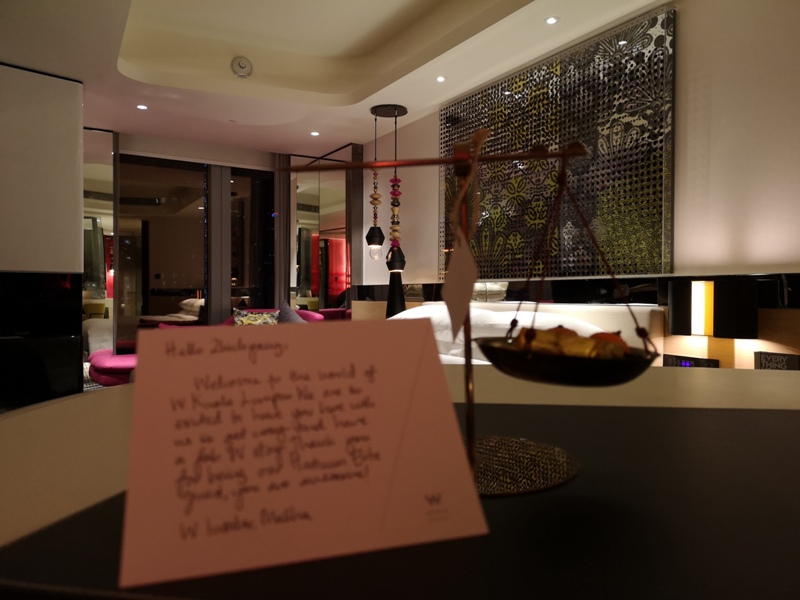 Hello
Welcome to the world of
W Kuala Lumpur. We are so
excited to have you here with
us so get cozy and have
a fab W stay. Thank you
for being our Platinum Elite
Guest, you are awesome!
W Insider
W
EVERY
THING